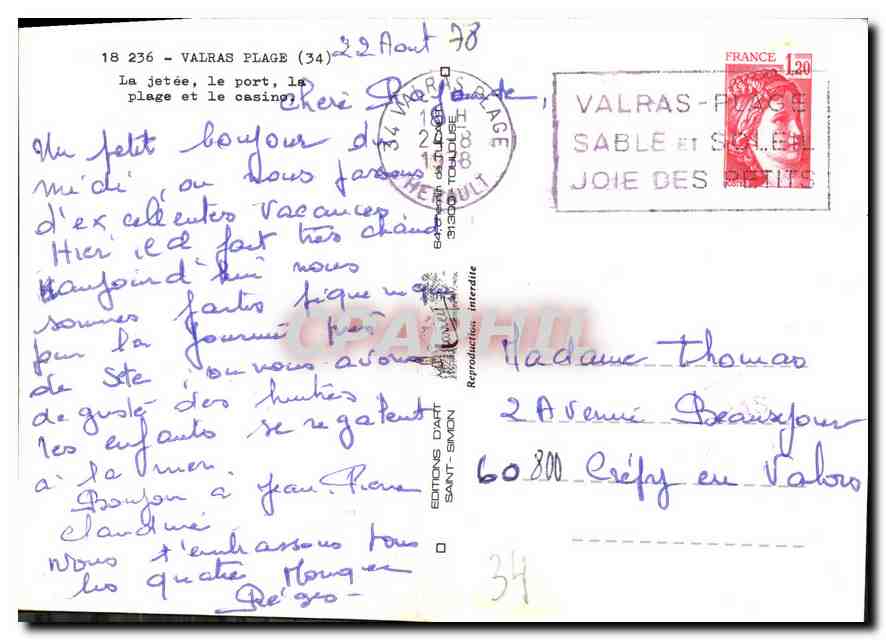 18 236 - VALRAS PLAGE (34)
La jetée, le port, la
plage et le casino.
22 Aout 78
Cheré
Un petit bonjour du
midi, ou nous passons
d'excellentes vacances
Hier il a fait très chaud
aujourd'hui nous
sommes partis pique nique
pour la journée près
de Sète ou nous avons
degusté des huitres
les enfants se regalent
à la mer.
Bonjour a Jean-Pierre
Claudine
Nous t'embrassons tous
les quatre
Régis -
34 VALRAS PLAGE
18 H
HERAULT
VALRAS-PLAGE
SABLE ET SOLEIL
JOIE DES PETITS
FRANCE 1,20
POSTES
31300 TOULOUSE
Reproduction interdite
EDITIONS D'ART
SAINT-SIMON
CPARAMA
Madame Thomas
2 Avenue Beauséjour
60800 Crépy en Valois
34